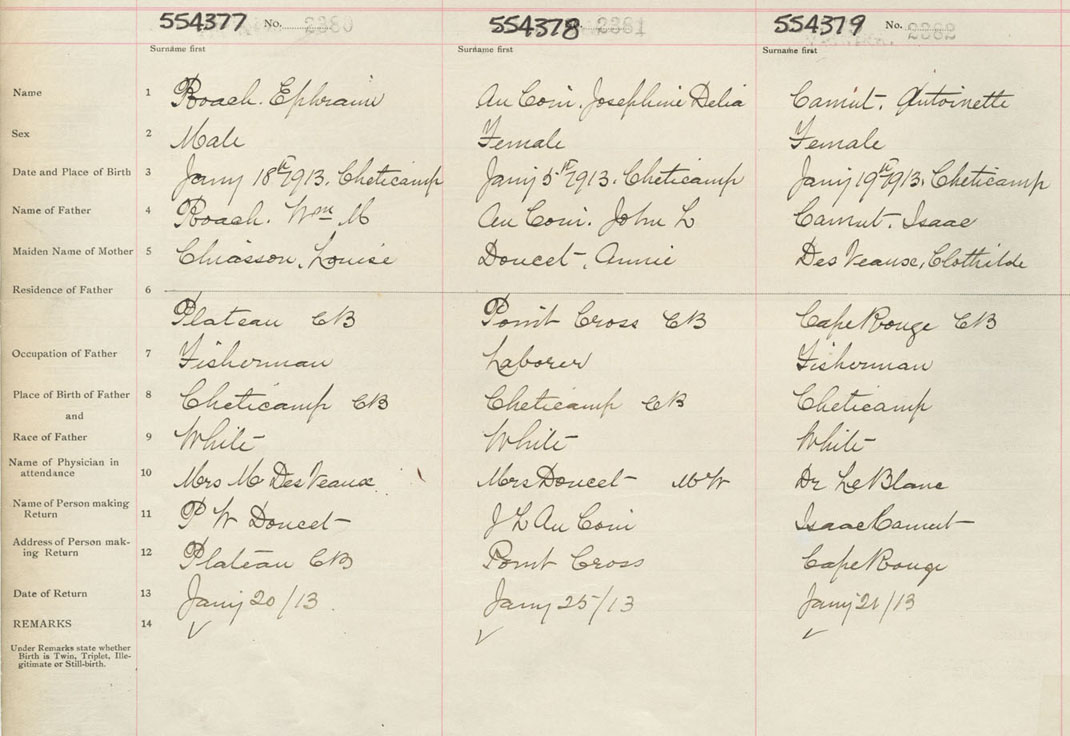 554377 No. 2380 554378 2381 554379 No. 2382
Surname first Surname first Surname first
Name 1 Roach. Ephraim Au Coin. Josephine Delia Camut. Antoinette
Sex 2 Male Female Female
Date and Place of Birth 3 Jany 18th 1913. Cheticamp Jany 5th 1913. Cheticamp Jany 19th 1913. Cheticamp
Name of Father 4 Roach. Wm M Au Coin. John L Camut. Isaac
Maiden Name of Mother 5 Chiasson, Louise Doucet, Annie Des Veause, Clothilde
Residence of Father 6
Plateau CB Point Cross CB Cape Rouge CB
Occupation of Father 7 Fisherman Laborer Fisherman
Place of Birth of Father 8 Cheticamp CB Cheticamp CB Cheticamp
and
Race of Father 9 White White White
Name of Physician in
attendance 10 Mrs M Des Veaux Mrs Doucet MW Dr Le Blanc
Name of Person making
Return 11 P W Doucet J L Au Coin Isaac Camut
Address of Person mak-
ing Return 12 Plateau CB Point Cross Cape Rouge
Date of Return 13 Jany 20/13. Jany 25/13 Jany 21/13
REMARKS 14
Under Remarks state whether
Birth is Twin, Triplet, Ille-
gitimate or Still-birth.